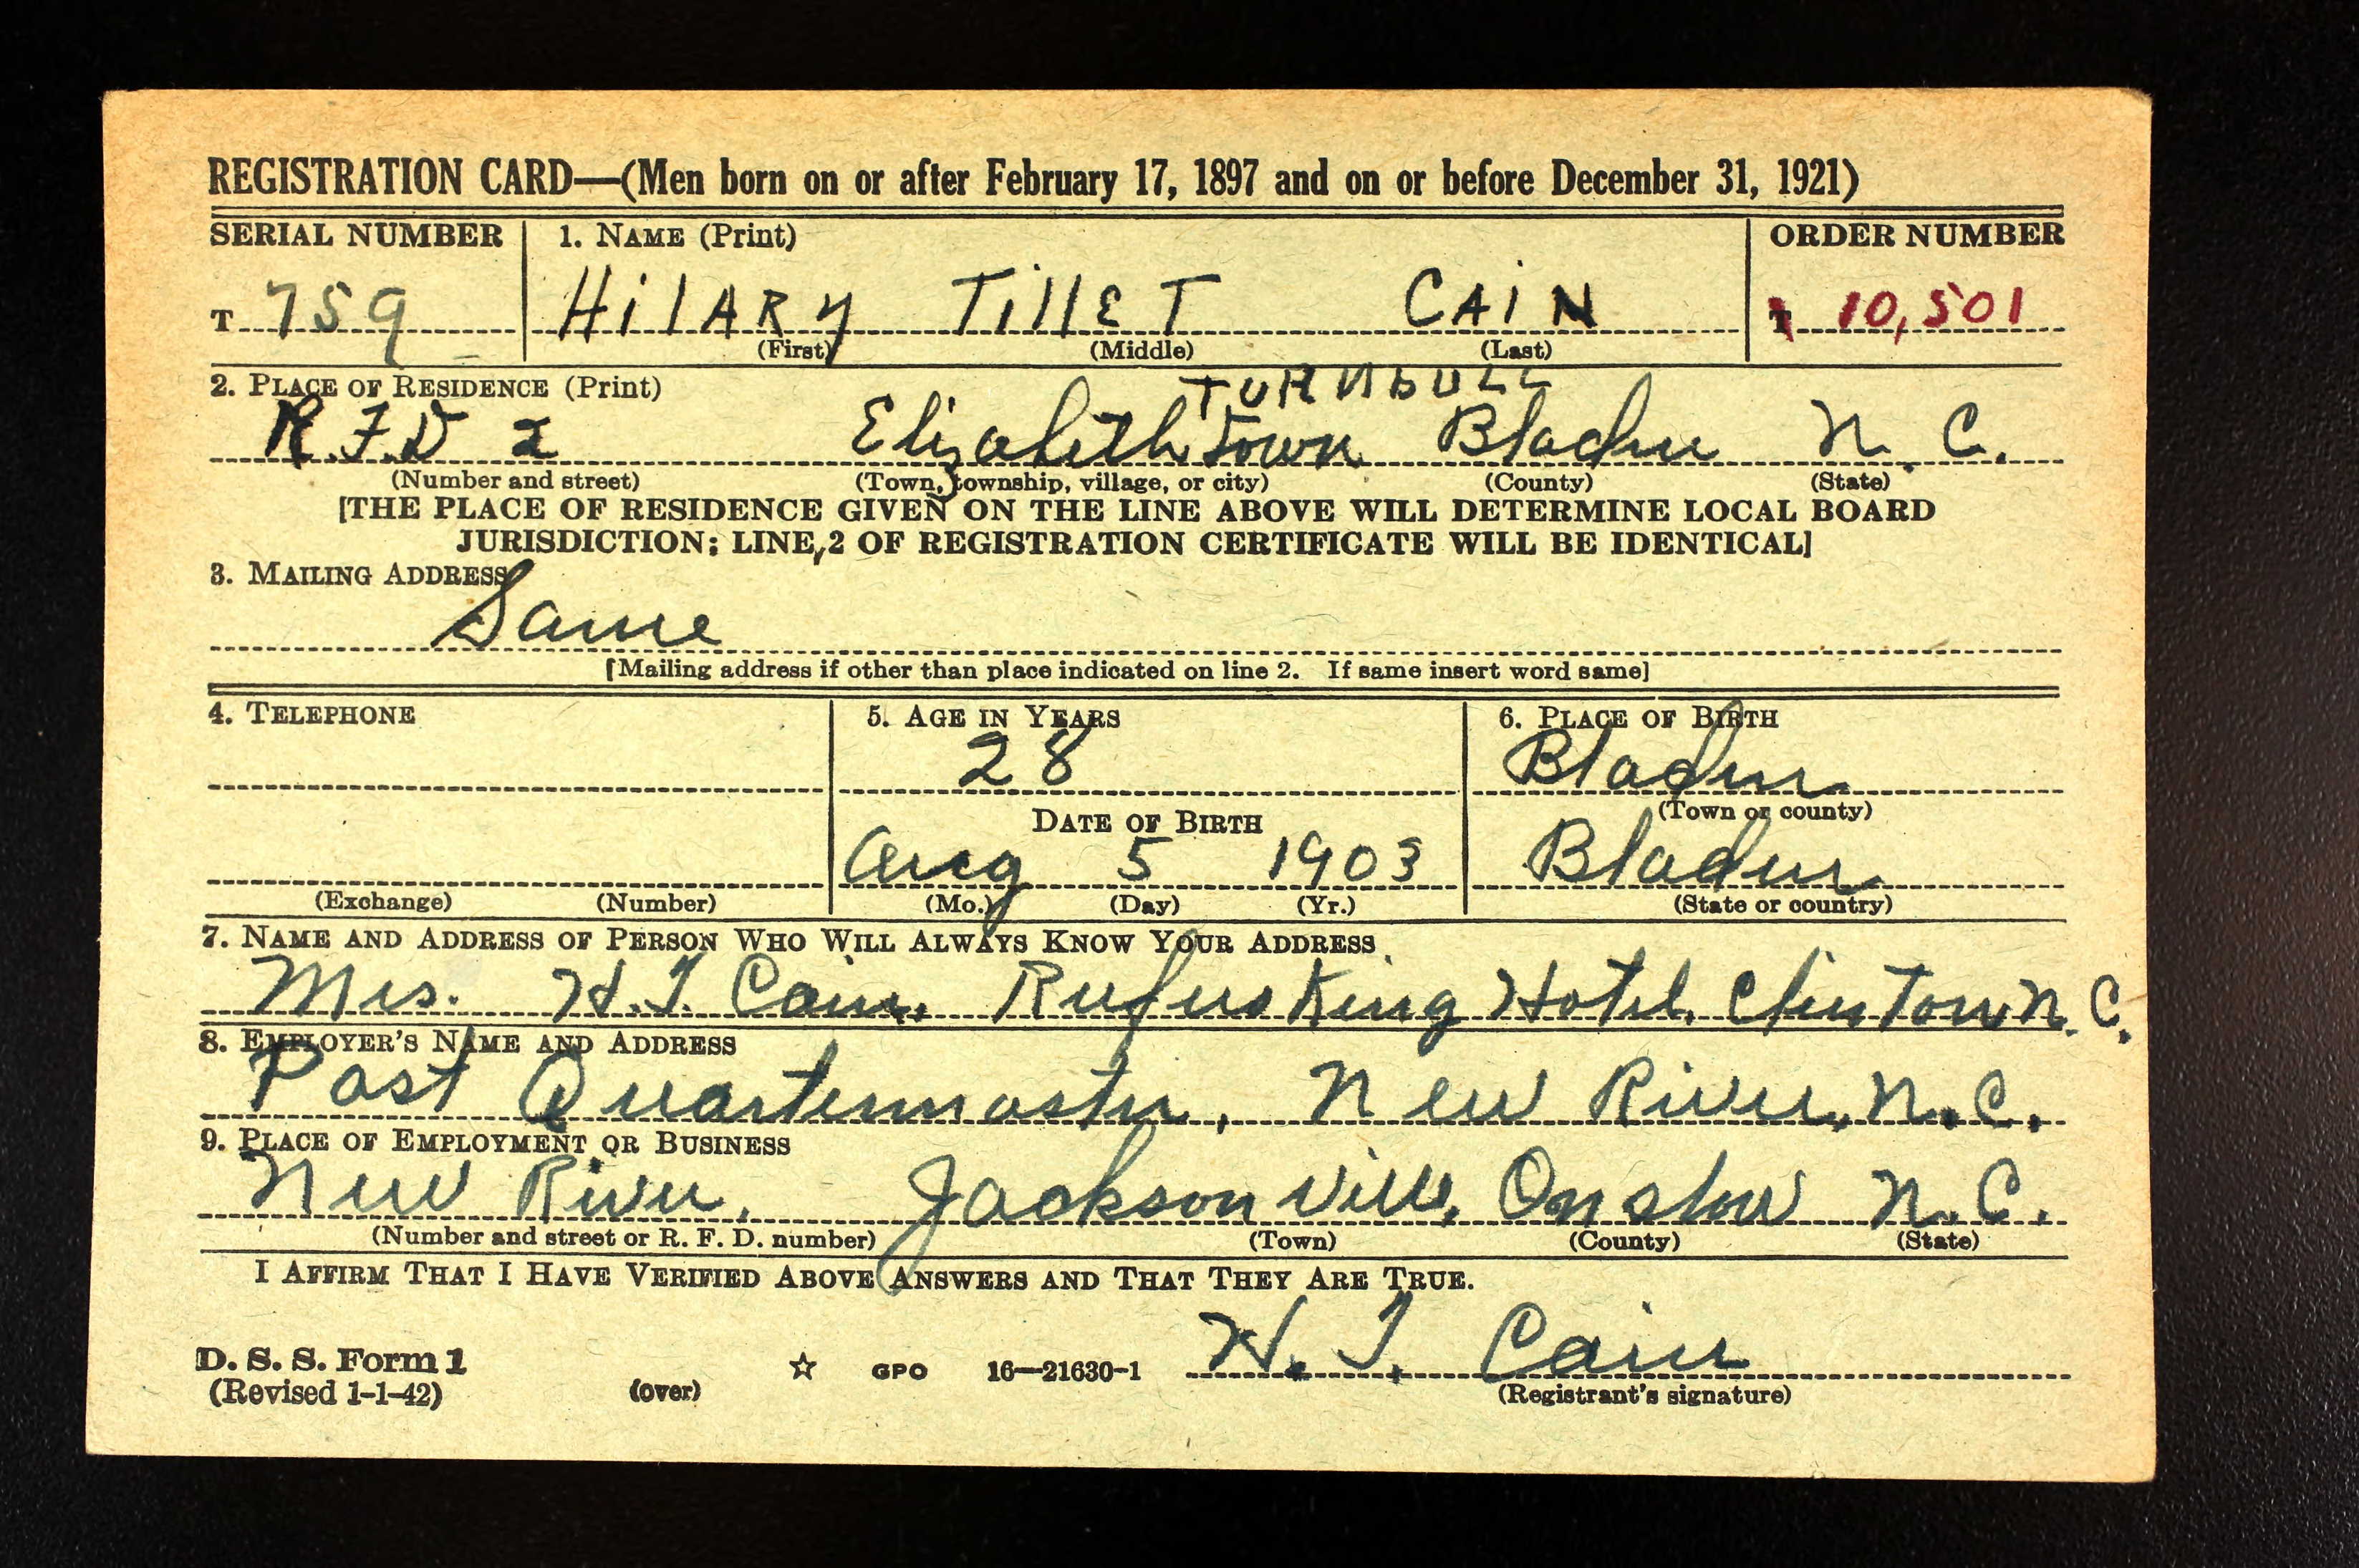 REGISTRATION CARD—(Men born on or after February 17, 1897 and on or before December 31, 1921)
SERIAL NUMBER 1. NAME (Print) ORDER NUMBER
T 759 HilARy TillET CAiN T 10,501
(First) (Middle) (Last)
TURNBULL
2. PLACE OF RESIDENCE (Print)
R.F.D 2 Elizabethtown Bladen N.C.
(Number and street) (Town, township, village, or city) (County) (State)
[THE PLACE OF RESIDENCE GIVEN ON THE LINE ABOVE WILL DETERMINE LOCAL BOARD
JURISDICTION; LINE 2 OF REGISTRATION CERTIFICATE WILL BE IDENTICAL]
3. MAILING ADDRESS
Same
[Mailing address if other than place indicated on line 2. If same insert word same]
4. TELEPHONE 5. AGE IN YEARS 6. PLACE OF BIRTH
28 Bladen
(Town or county)
DATE OF BIRTH
Aug 5 1903 Bladen
(Exchange) (Number) (Mo.) (Day) (Yr.) (State or country)
7. NAME AND ADDRESS OF PERSON WHO WILL ALWAYS KNOW YOUR ADDRESS
Mrs. H.T. Cain, Rufus King Hotel, Clinton N.C.
8. EMPLOYER'S NAME AND ADDRESS
Post Quartermaster, New River, N.C.
9. PLACE OF EMPLOYMENT OR BUSINESS
New River, Jacksonville, Onslow N.C.
(Number and street or R. F. D. number) (Town) (County) (State)
I AFFIRM THAT I HAVE VERIFIED ABOVE ANSWERS AND THAT THEY ARE TRUE.
H. T. Cain
D. S. S. Form 1 ☆ GPO 16—21630-1
(Revised 1-1-42) (over) (Registrant's signature)